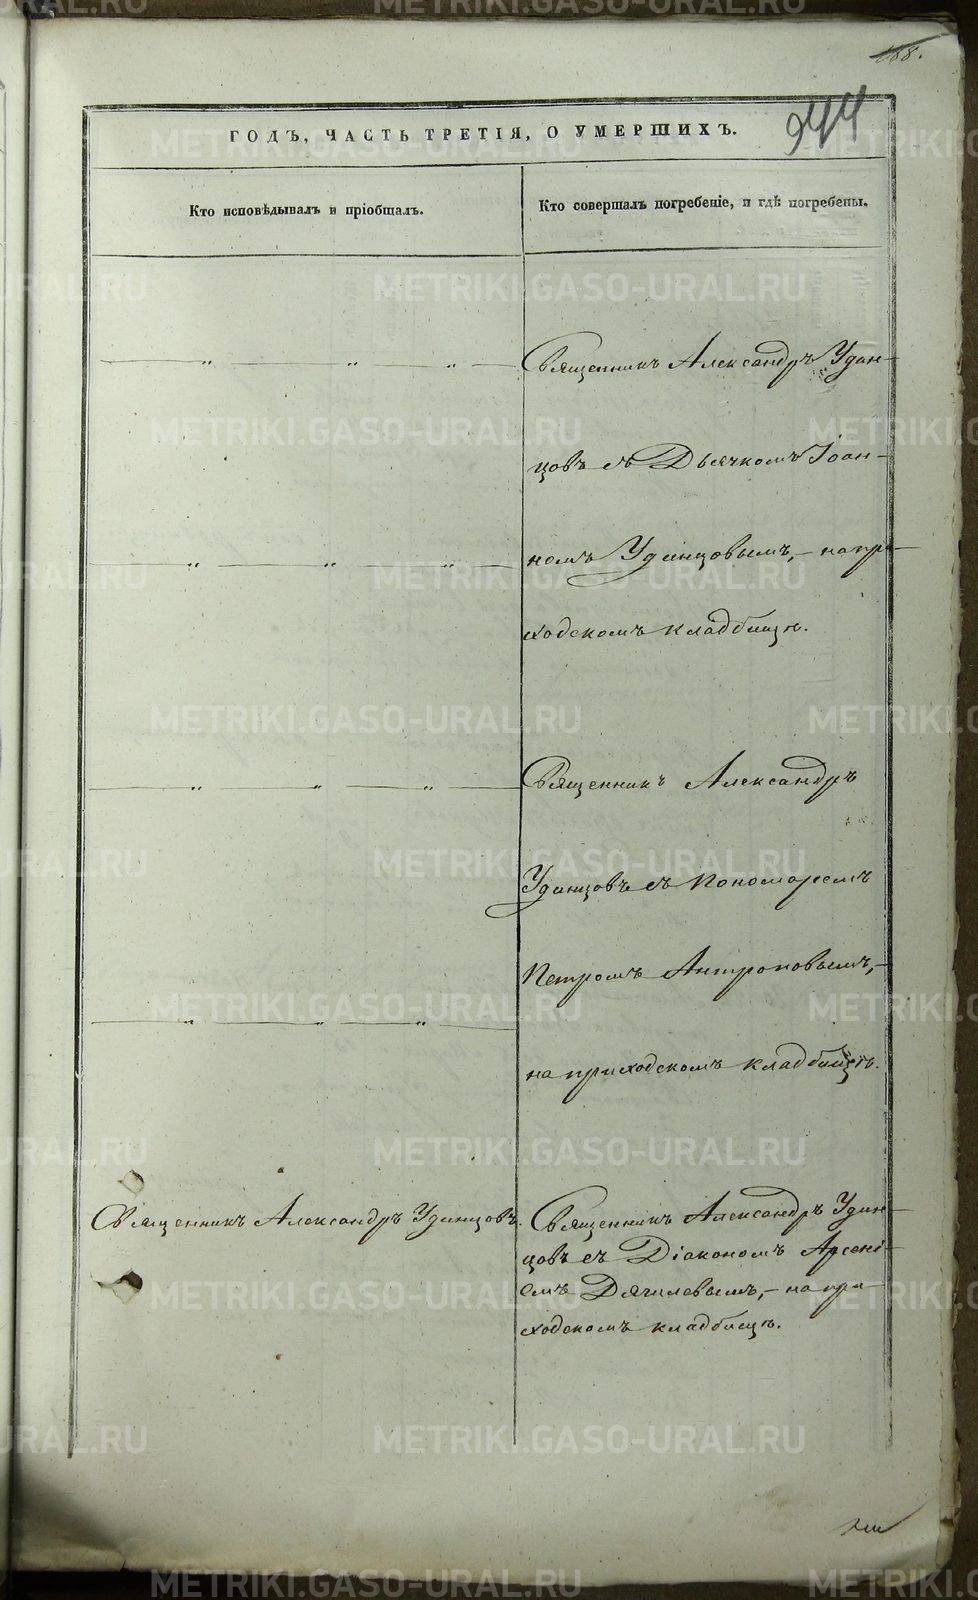 188.
944
ГОДЪ, ЧАСТЬ ТРЕТІЯ, О УМЕРШИХЪ.
Кто исповѣдывалъ и пріобщалъ.
Кто совершалъ погребеніе, и гдѣ погребены.
Священникъ Александръ Удин-
цовъ съ Дьячкомъ Іоан-
номъ Удинцовымъ,- на при-
ходскомъ кладбищѣ.
Священникъ Александръ
Удинцовъ съ Пономаремъ
Петромъ Антроповымъ,-
на приходскомъ кладбищѣ.
Священникъ Александръ Удинцовъ.
Священникъ Александръ Удин-
цовъ съ Діакономъ Арсені-
емъ Дягилевымъ,- на при-
ходскомъ кладбищѣ.
METRIKI.GASO-URAL.RU